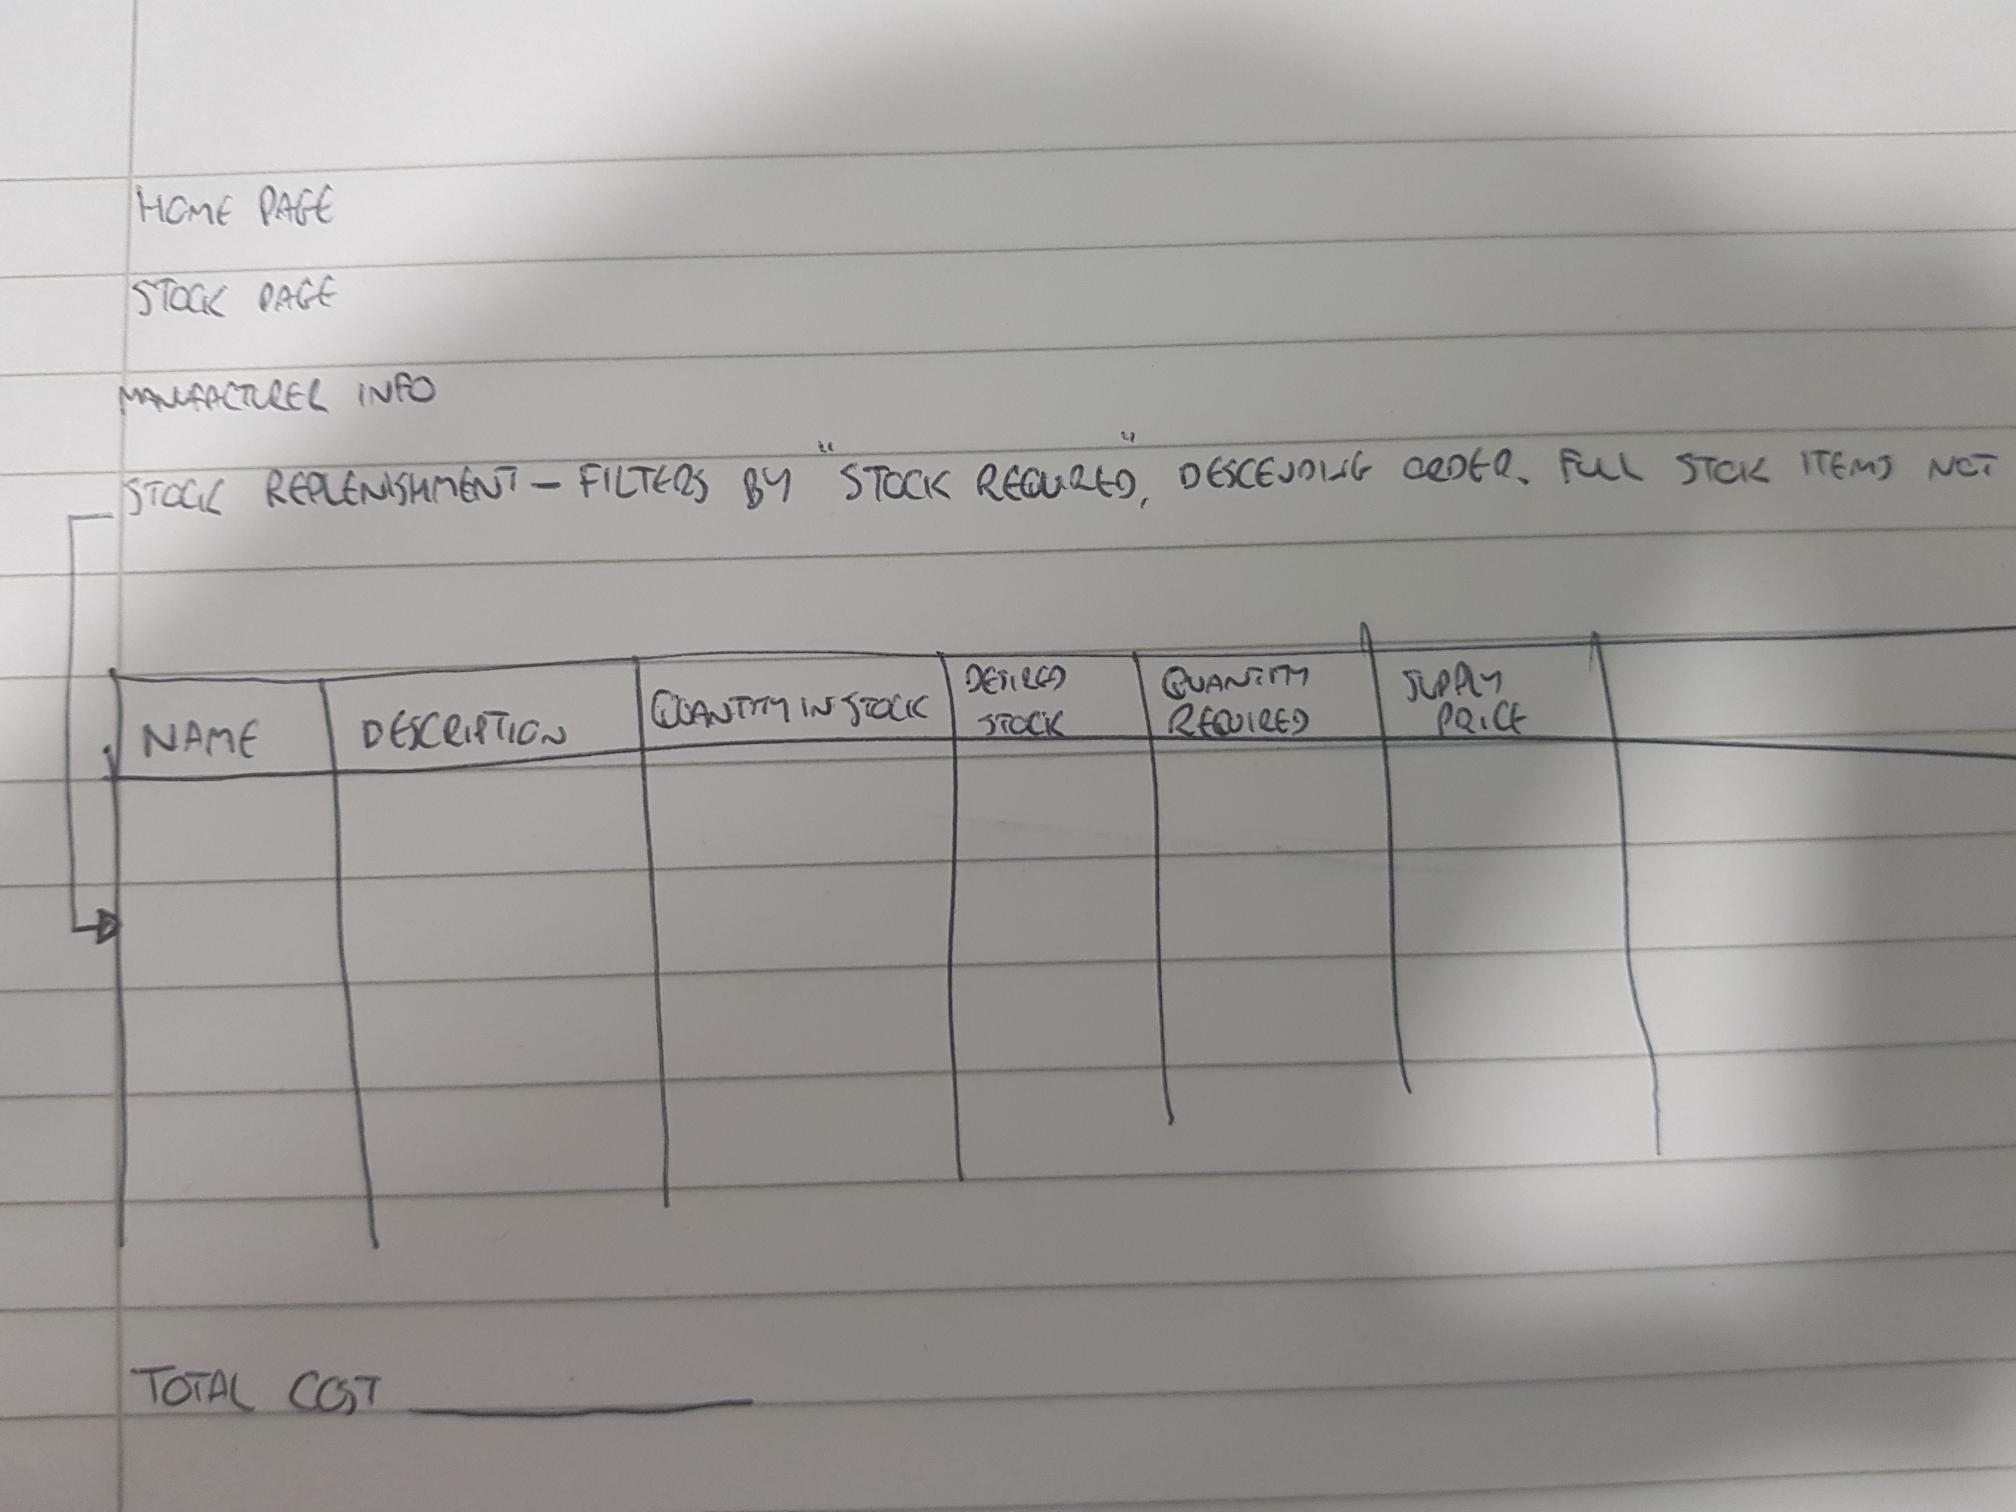 HOME PAGE
STOCK PAGE
MANUFACTURER INFO
STOCK REPLENISHMENT - FILTERS BY "STOCK REQUIRED", DESCENDING ORDER. FULL STOCK ITEMS NOT
NAME DESCRIPTION QUANTITY IN STOCK DESIRED STOCK QUANTITY REQUIRED SUPPLY PRICE
TOTAL COST